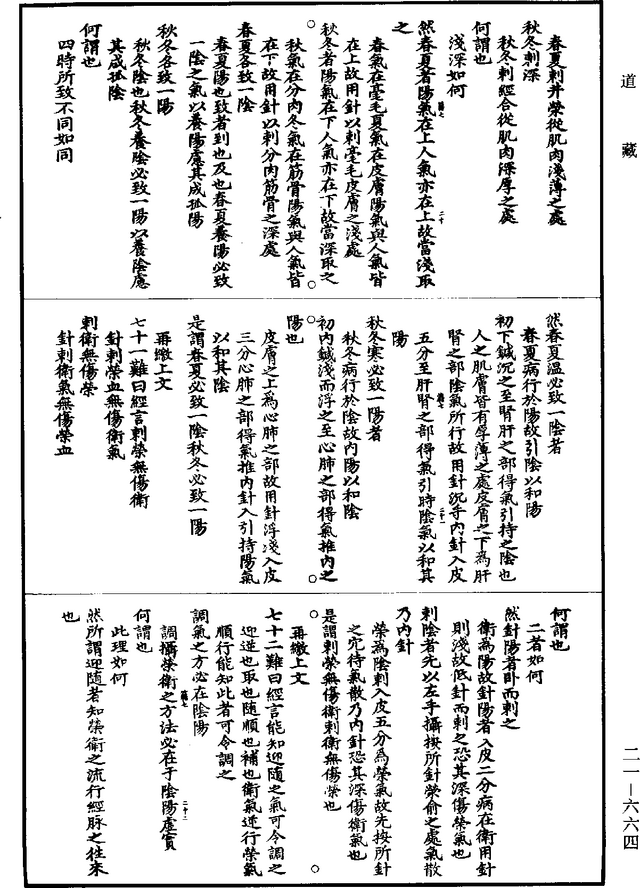 道藏
春夏刺井滎從肌肉淺薄之處
秋冬刺深
秋冬刺經合從肌肉深厚之處
何謂也
淺深如何
然春夏者陽氣在上人氣亦在上故當淺取
之
春氣在毫毛夏氣在皮膚陽氣與人氣皆
在上故用針以刺毫毛皮膚之淺處
秋冬者陽氣在下人氣亦在下故當深取之
秋氣在分肉冬氣在筋骨陽氣與人氣皆
在下故用針以刺分肉筋骨之深處
春夏各致一陰
春夏陽也致者到也及也春夏養陽必致
一陰之氣以養陽慮其成孤陽
秋冬各致一陽
秋冬陰也秋冬養陰必致一陽以養陰慮
其成孤陰
何謂也
四時所致不同如同
然春夏温必致一陰者
春夏病行於陽故引陰以和陽
初下鍼沉之至腎肝之部得氣引持之陰也
人之肌膚皆有厚薄之處皮膚之下為肝
腎之部陰氣所行故用針沉手內針入皮
五分至肝腎之部得氣引時陰氣以和其
陽
秋冬寒必致一陽者
秋冬病行於陰故內陽以和陰
初內鍼淺而浮之至心肺之部得氣推內之
陽也
皮膚之上為心肺之部故用針浮淺入皮
三分心肺之部得氣推內針入引持陽氣
以和其陰
是謂春夏必致一陰秋冬必致一陽
再繳上文
七十一難曰經言刺榮無傷衛
針刺榮血無傷衛氣
刺衛無傷榮
針刺衛氣無傷榮血
何謂也
二者如何
然針陽者卧而刺之
衛為陽故針陽者入皮二分病在衛用針
則淺故低針而刺之恐其深傷榮氣也
刺陰者先以左手攝按所針榮俞之處氣散
乃內針
榮為陰刺入皮五分為榮氣故先按所針
之穴待氣散乃內針恐其深傷衛氣也
是謂刺榮無傷衛刺衛無傷榮也
再繳上文
七十二難曰經言能知迎隨之氣可令調之
迎逆也取也隨順也補也衛氣逆行榮氣
順行能知此者可令調之
調氣之方必在陰陽
調攝榮衛之方法必在于陰陽虛實
何謂也
此理如何
然所謂迎隨者知榮衛之流行經脉之往來
也
二一—六六四